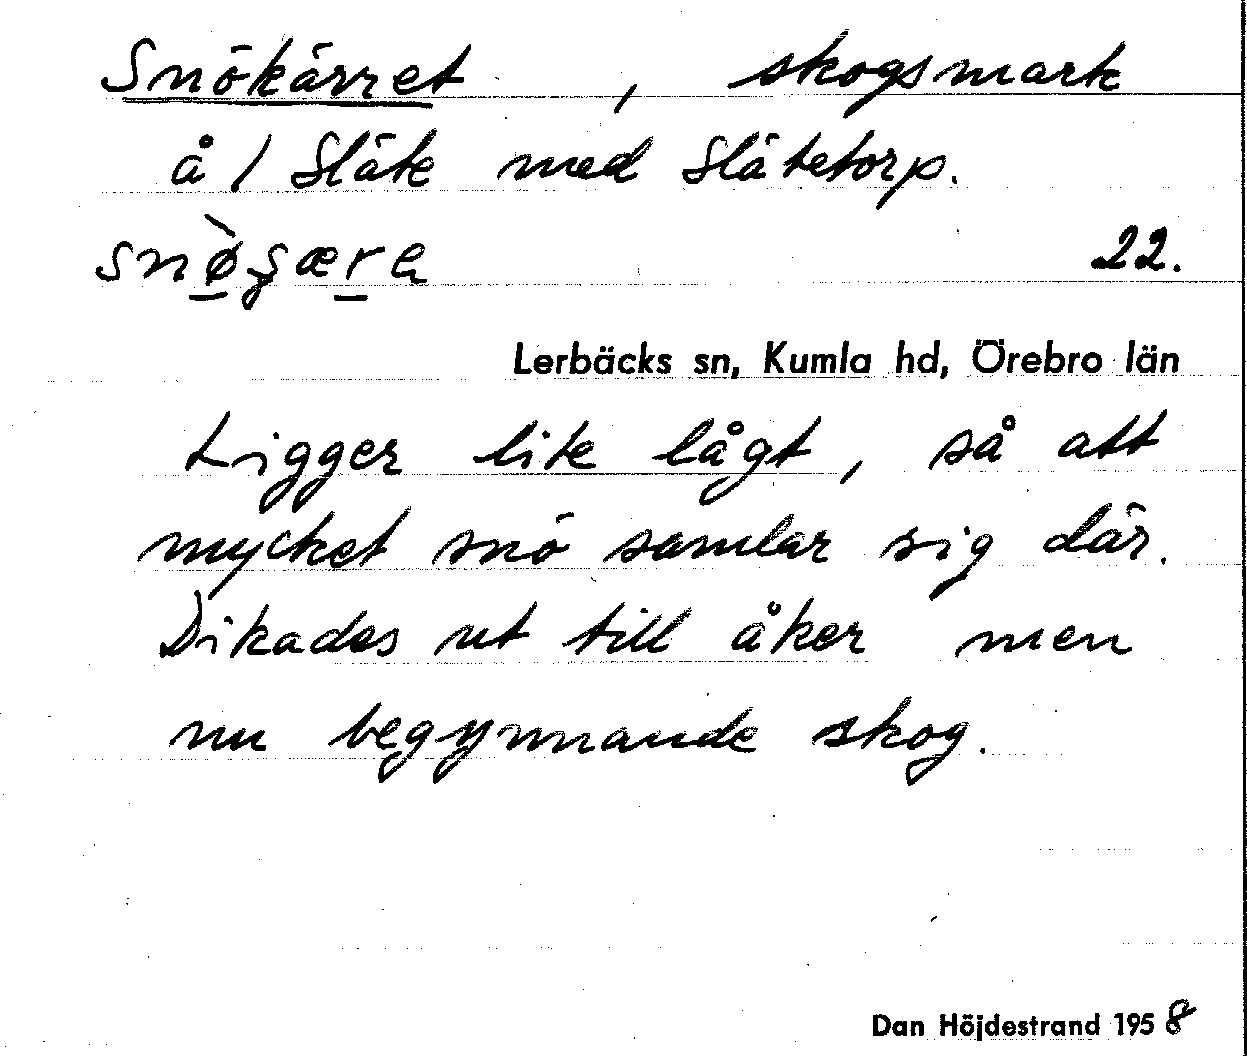 Snökärret , skogsmark
å / Släte med Slätetorp.
22.
Lerbäcks sn, Kumla hd, Örebro län
Ligger lite lågt, så att
mycket snö samlar sig där.
Dikades ut till åker men
nu begynnande skog.
Dan Höjdestrand 1958